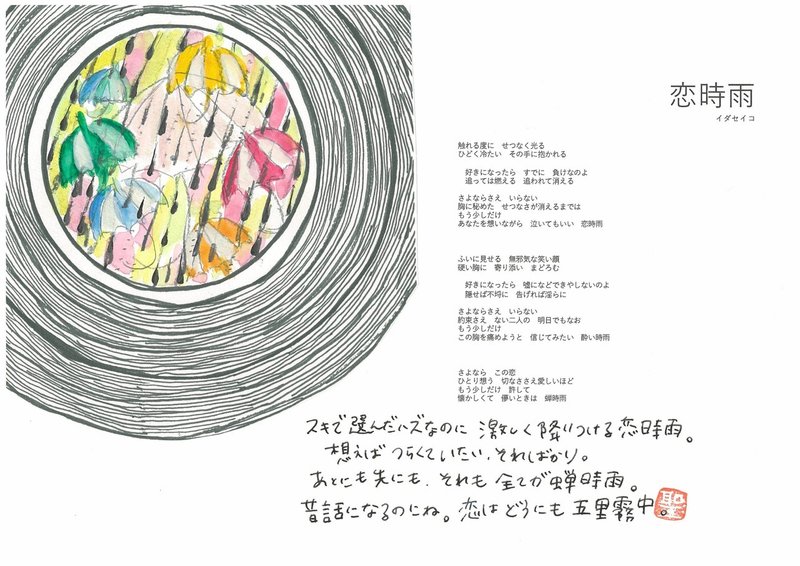 恋時雨
イダセイコ
触れる度に　せつなく光る
ひどく冷たい　その手に抱かれる
好きになったら　すでに　負けなのよ
追っては燃える　追われて消える
さよならさえ　いらない
胸に秘めた　せつなさが消えるまでは
もう少しだけ
あなたを想いながら　泣いてもいい　恋時雨
ふいに見せる　無邪気な笑い顔
硬い胸に　寄り添い　まどろむ
好きになったら　嘘になどできやしないのよ
隠せば不埒に　告げれば淫らに
さよならさえ　いらない
約束さえ　ない二人の　明日でもなお
もう少しだけ
この胸を痛めようと　信じてみたい　酔い時雨
さよなら　この恋
ひとり想う　切なささえ愛しいほど
もう少しだけ　許して
懐かしくて　儚いときは　蝉時雨
スキで選んだハズなのに 激しく降りつける恋時雨。
想えばつらくていたい、そればかり。
あとにも先にも、それも全てが蝉時雨。
昔話になるのにね。恋はどうにも五里霧中。
聖